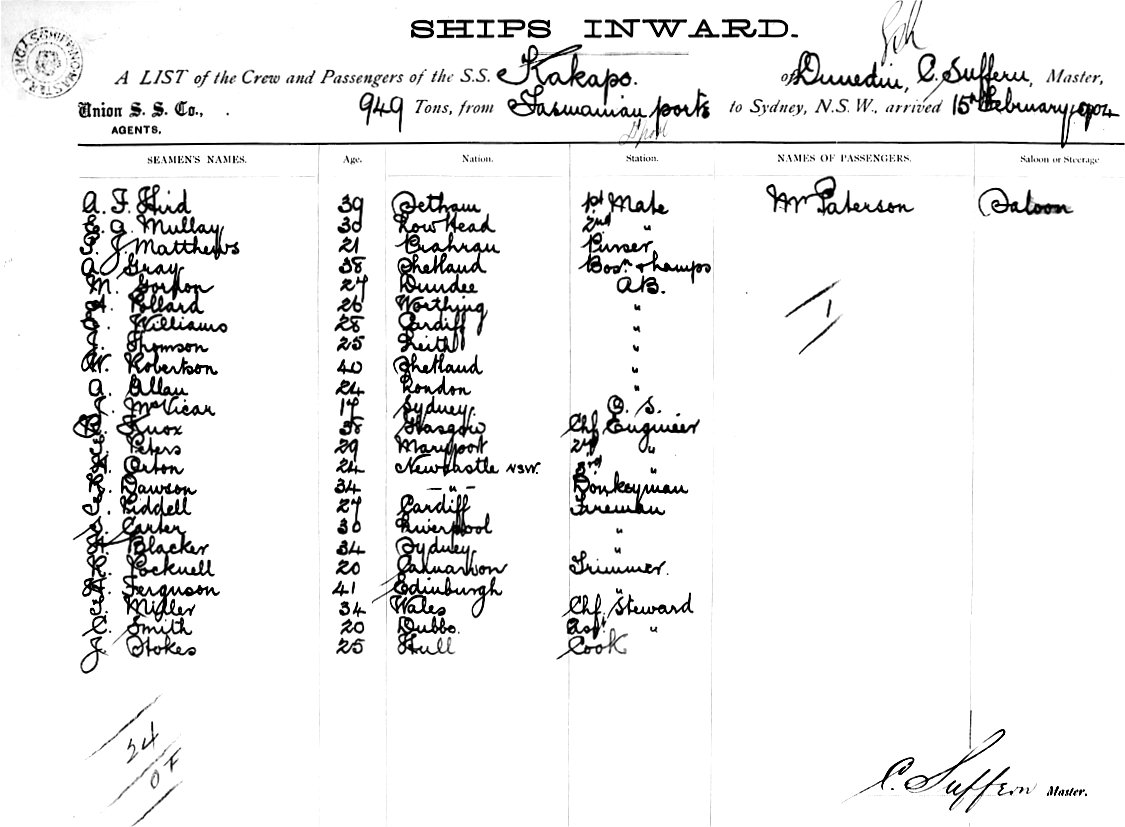 SHIPS INWARD.
A LIST of the Crew and Passengers of the S.S. Kakapo. of Dunedin, C. Suffern, Master,
Union S. S. Co., 949 Tons, from Tasmanian ports to Sydney, N.S.W., arrived 15th February 1904
AGENTS.
SEAMEN'S NAMES. Age. Nation. Station. NAMES OF PASSENGERS. Saloon or Steerage
A. F. Hird 39 1st Mate Mr Paterson Saloon
E. A. Mullay 30 Low Head 2nd "
J. Matthews 21 Prahran Purser
A. Gray 38 Shetland Bosn & Lamps
M. Gordon 27 Dundee A.B.
A. Pollard 26 Worthing "
Williams 28 Cardiff "
Thomson 25 Leith "
W. Robertson 40 Shetland "
A. Allan 24 London "
McVicar 17 Sydney. O. S.
Knox 38 Glasgow Chf Engineer
Peters 29 Maryport 2nd "
Orton 24 Newcastle NSW. 3rd "
Dawson 34 - " - Donkeyman
Riddell 27 Cardiff Fireman
Carter 30 Liverpool "
Blacker 34 Sydney "
Pocknell 20 Carnarvon Trimmer.
Ferguson 41 Edinburgh "
Miller 34 Wales Chf. Steward
Smith 20 Dubbo. Asst "
J. Stokes 25 Hull Cook
1
24
C. Suffern Master.